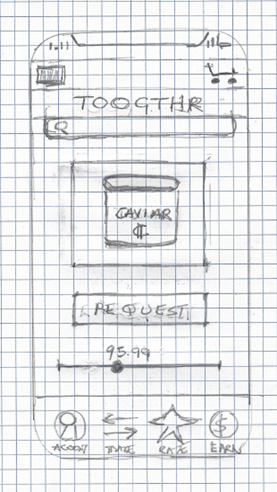 TOOGTHR
CAVIAR
₵
REQUEST
95.99
ACCONT TRADE RATE EARN
$